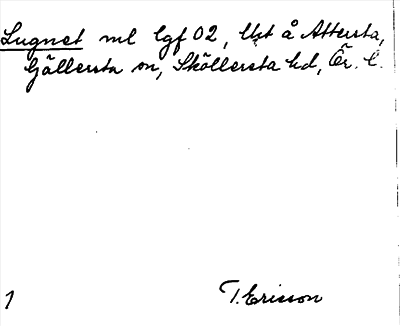 Lugnet ml lgf 02, lht å Attersta,
Gällersta sn, Sköllersta hd, Ör. l.
1 T. Ericson